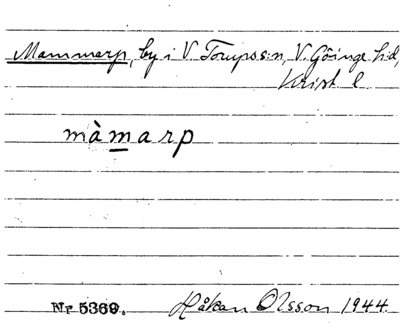 Mammarp, by i V. Torups s:n, V. Göinge hd,
Krist l
màmarp
Nr 5369. Håkan Olsson 1944.